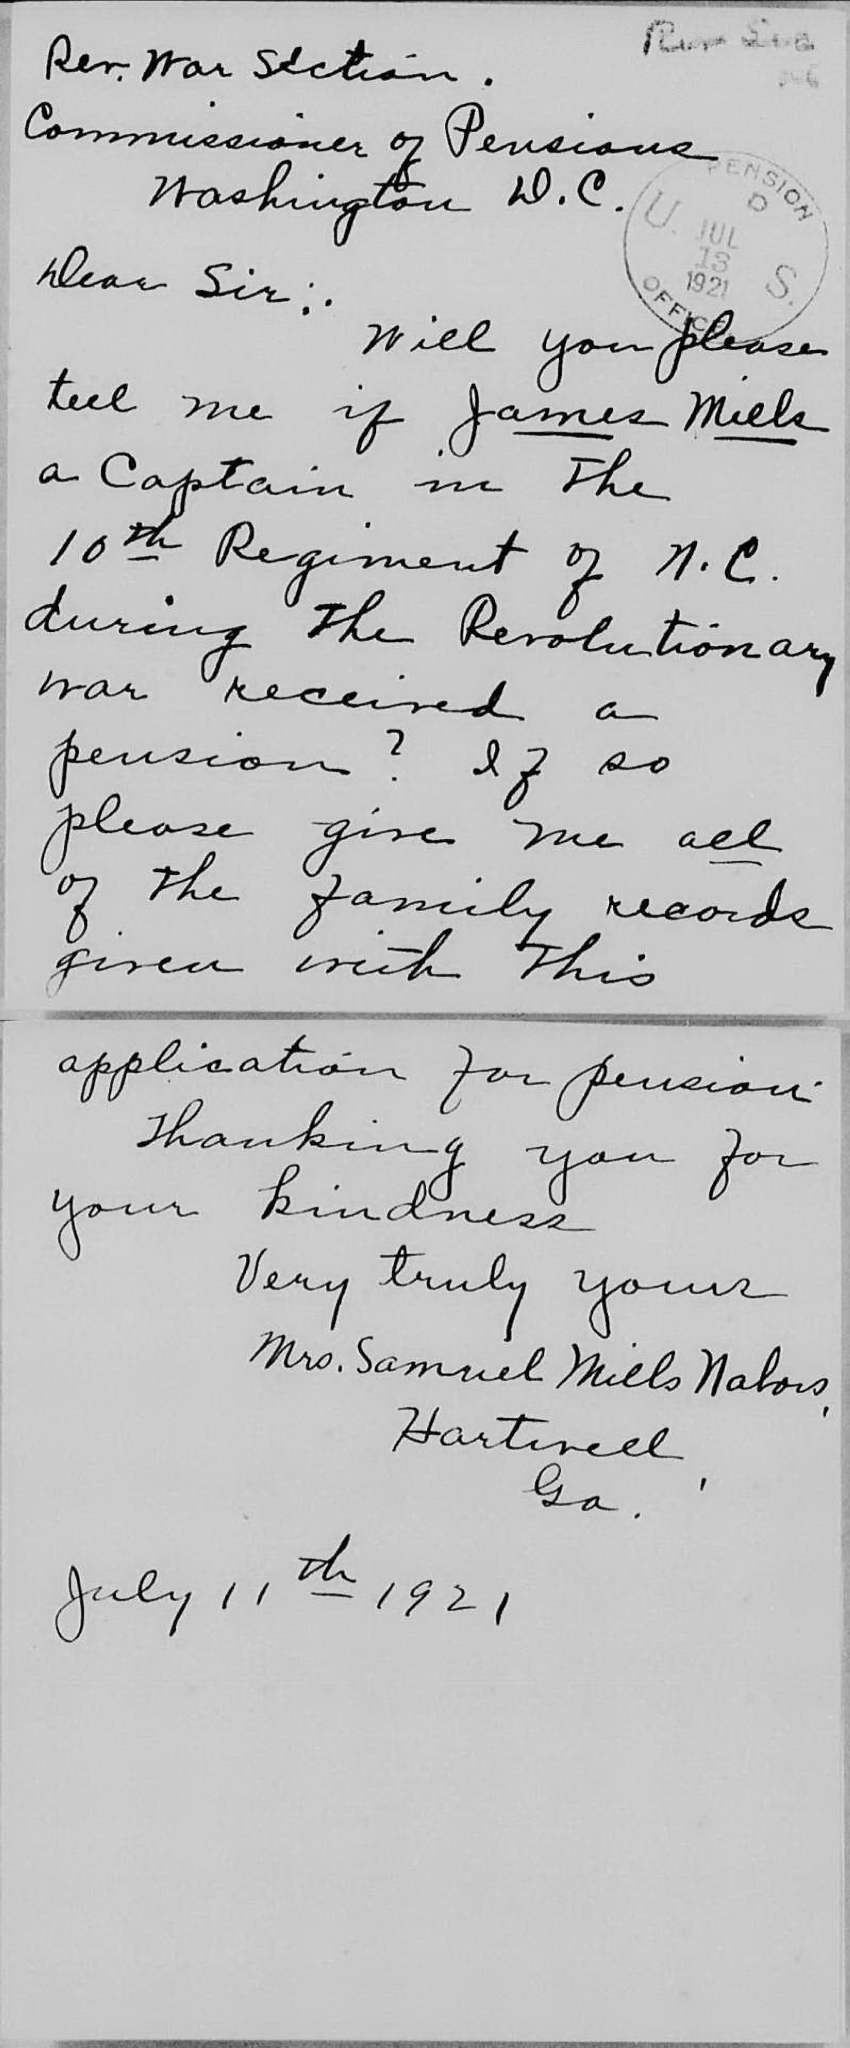 Rev. War Section.
Commissioner of Pensions
Washington D.C.
PENSION
D
U. S.
JUL
13
1921
OFFICE
Dear Sir:.
Will you please
tell me if James Mills
a Captain in the
10th Regiment of N.C.
during the Revolutionary
war received a
pension? If so
please give me all
of the family records
given with this
application for pension.
Thanking you for
your kindness
Very truly yours
Mrs. Samuel Mills Nabors,
Hartwell,
Ga.
July 11th 1921